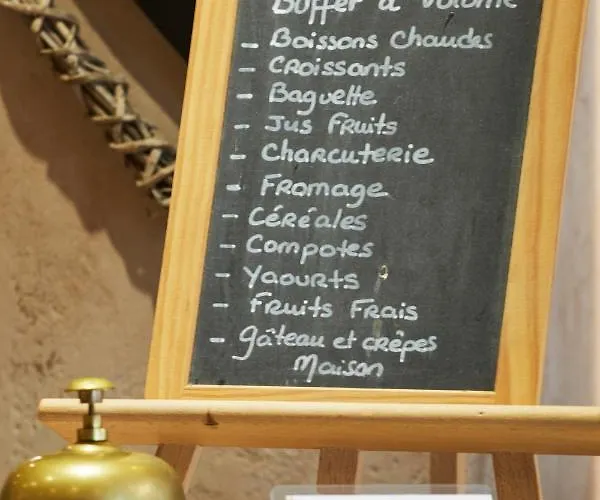 Buffet à volonté
- Boissons Chaudes
- Croissants
- Baguette
- Jus Fruits
- Charcuterie
- Fromage
- Céréales
- Compotes
- Yaourts
- Fruits Frais
- gâteau et crêpes
Maison